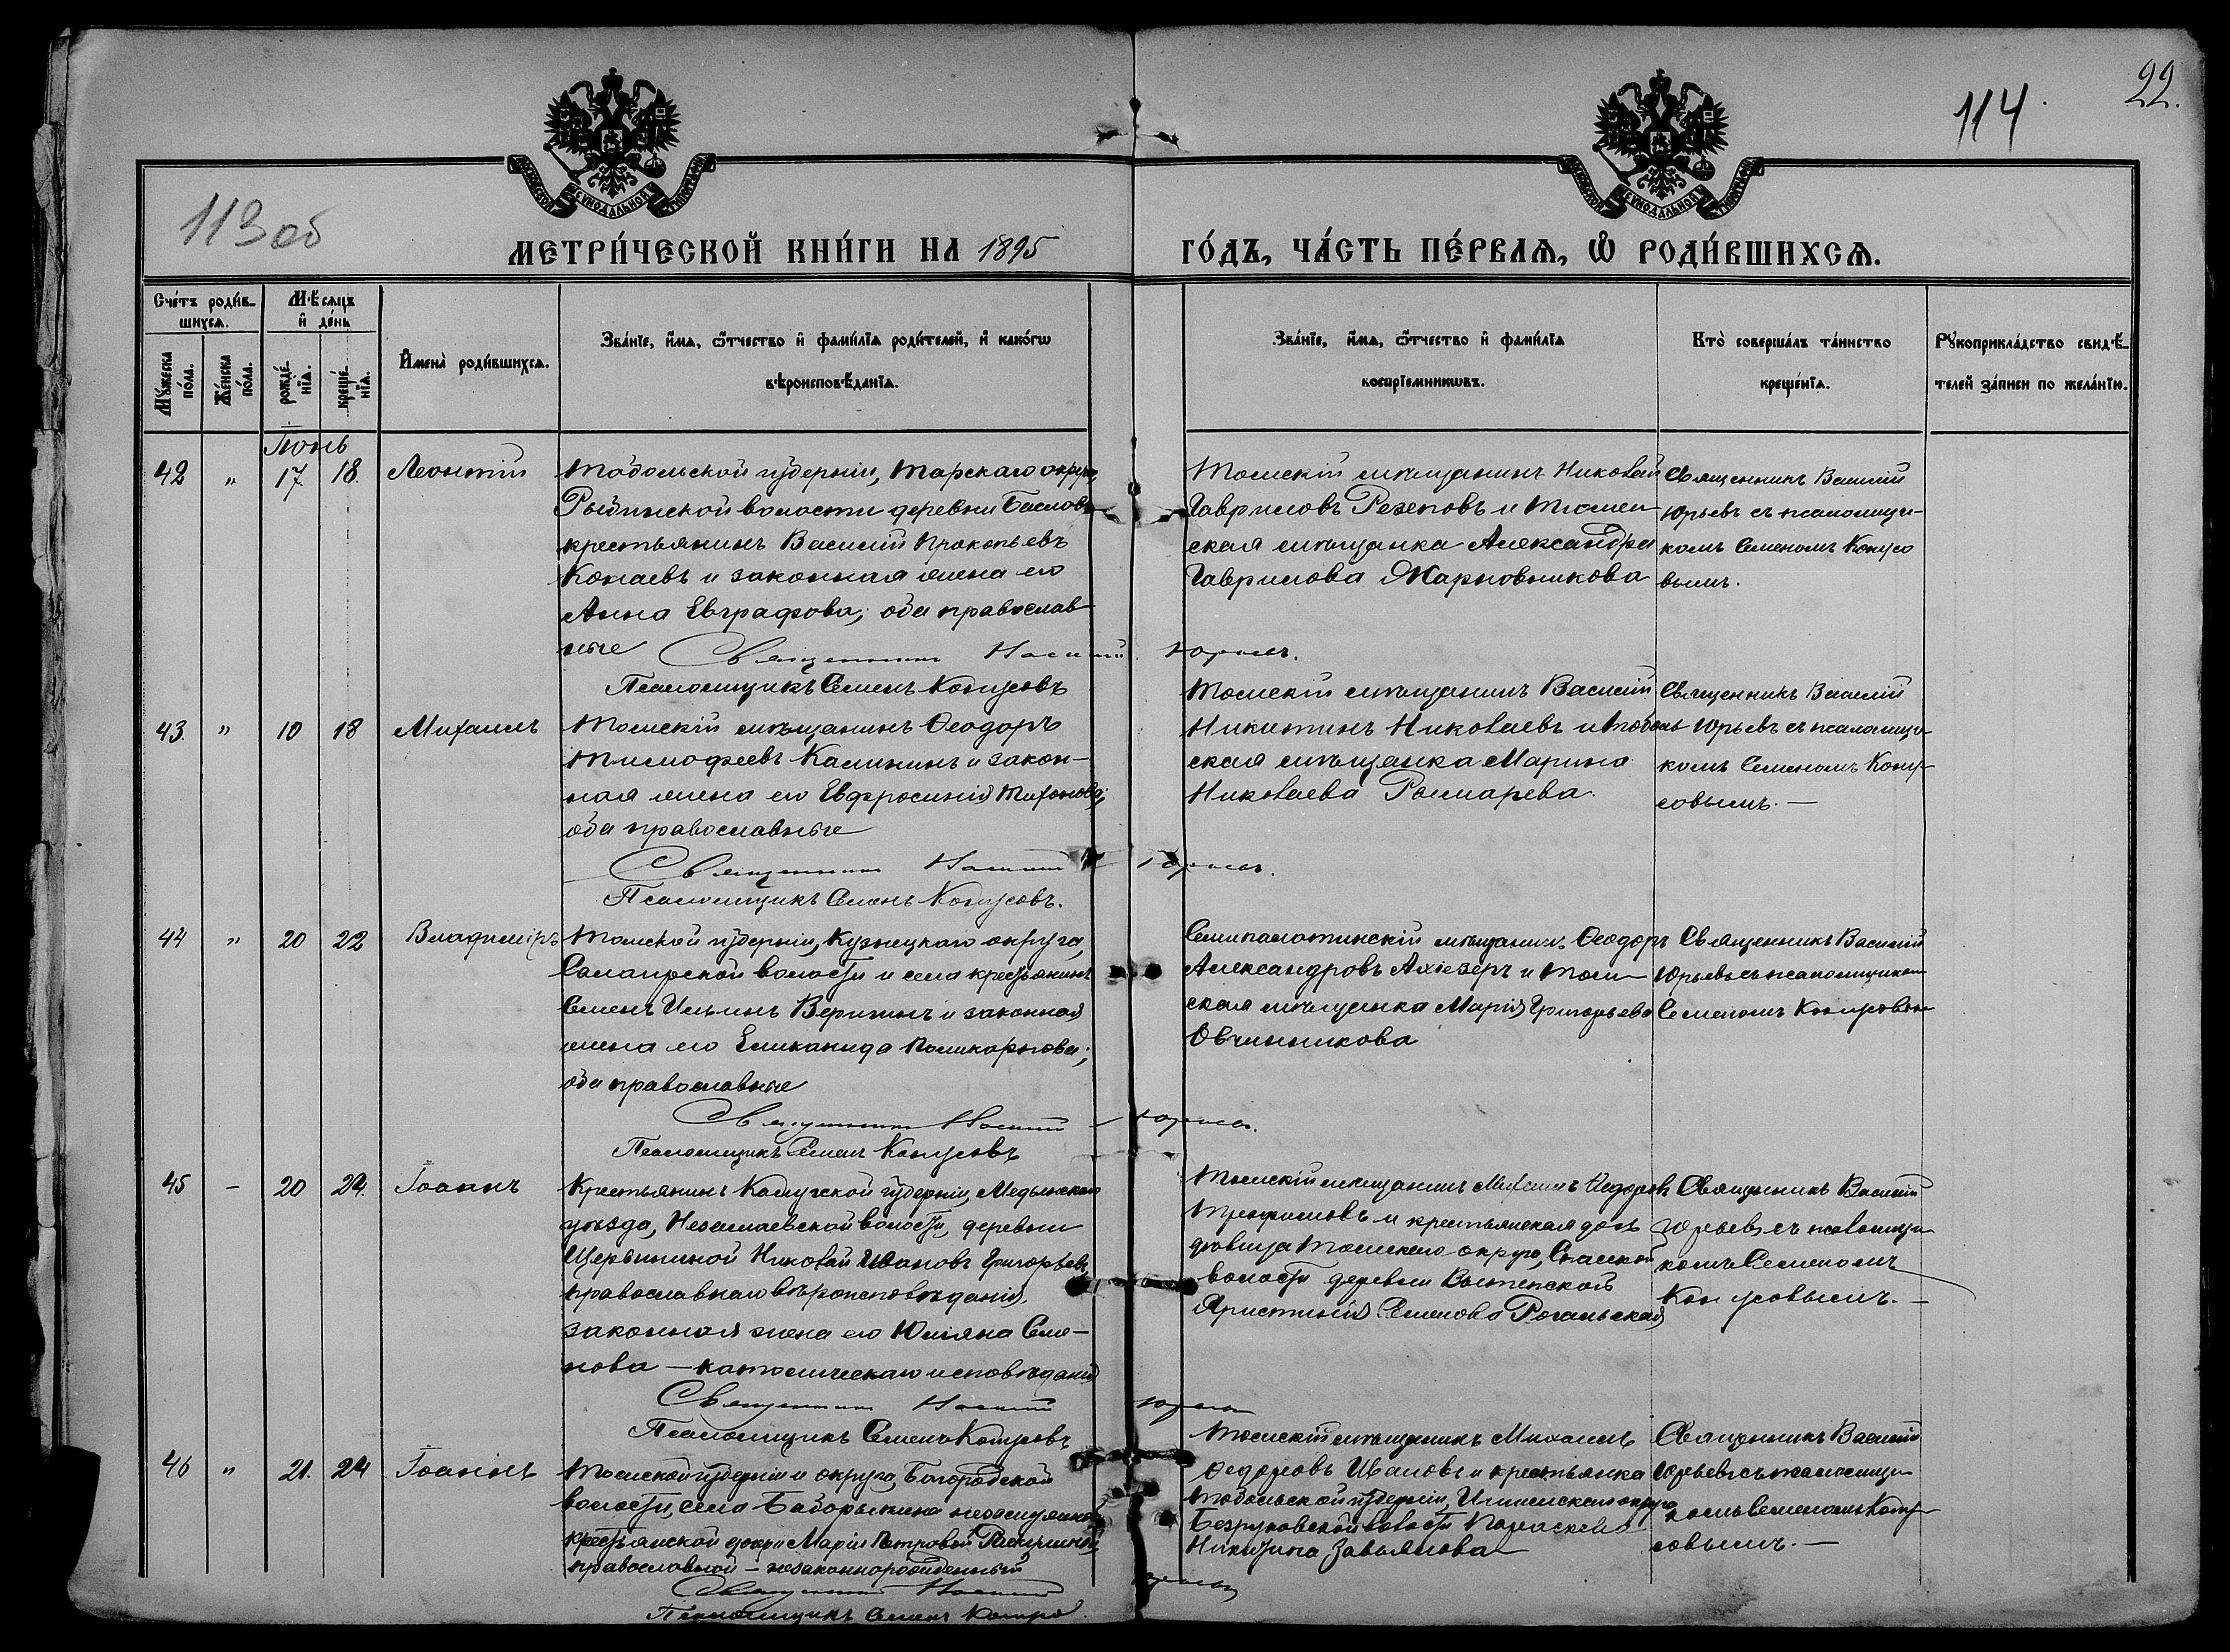 22.
114.
113 об
МЕТРИ́ЧЕСКОЙ КНИ́ГИ НА 1895
ГО́ДЪ, ЧА́СТЬ ПЕ́РВАѦ, Ѽ РОДИ́ВШИХСѦ.
Сче́тъ роди́в-
шихсѧ.
Мꙋ́жеска
по́ла.
Же́нска
по́ла.
Мѣ́сѧцъ
и҆ де́нь
рожде́-
нїѧ.
креще́-
нїѧ.
И҆мена̀ роди́вшихсѧ.
Зва́нїе, и҆́мѧ, ѻ҆́тчество и҆ фами́лїѧ роди́телей, и҆ како́гѡ
вѣроисповѣ́данїѧ.
Зва́нїе, и҆́мѧ, ѻ҆́тчество и҆ фами́лїѧ
воспрїемникѡвъ.
Кто̀ соверша́лъ та́инство
креще́нїѧ.
Рꙋкоприкла́дство свидѣ́-
телей за́писи по жела́нїю.
Іюнь
42 " 17. 18. Леонтій
Тобольской губерніи, Тарскаго округа,
Рыбинской волости деревни
крестьянинъ Василій Прокопьевъ
Копаевъ и законная жена его
Анна Евграфова; оба православ
ные
Священникъ Василій Юрьевъ.
Псаломщикъ Семенъ Конусовъ
Томскій мѣщанинъ Николай
Гавриловъ Резеповъ и Тюмен
ская мѣщанка Александра
Гаврилова Жарновникова
Священникъ Василій
Юрьевъ съ псаломщи-
комъ Семеномъ Конусо
вымъ.
43. " 10 18 Михаилъ
Томскій мѣщанинъ Ѳеодоръ
Тимофеевъ Калининъ и закон-
ная жена его Евфросинія Тихонова;
оба православные
Священникъ Василій Юрьевъ.
Псаломщикъ Семенъ Конусовъ.
Томскій мѣщанинъ Василій
Никитинъ Николаевъ и Тоболь
ская мѣщанка Марина
Николаева Рымарева.
Священникъ Василій
Юрьевъ съ псаломщи-
комъ Семеномъ Кону-
совымъ. —
44 " 20 22 Владиміръ
Томской губерніи, Кузнецкаго округа,
Салаирской волости и села крестьянинъ
Семенъ Ильинъ Веригинъ и законная
жена его Еликанида Поликарпова;
оба православные
Священникъ Василій Юрьевъ.
Псаломщикъ Семенъ Конусовъ
Семипалатинскій мѣщанинъ Ѳеодоръ
Александровъ Ахіезеръ и Том-
ская мѣщанка Марія Григорьева
Овчинникова
Священникъ Василій
Юрьевъ съ псаломщикомъ
Семеномъ Конусовым
45 - 20 24. Іоаннъ
Крестьянинъ Калужской губерніи, Медынскаго
уѣзда, Незамаевской волости, деревни
Щербининой Николай Ивановъ Григорьевъ
православнаго вѣроисповѣданія,
законная жена его Юліяна Семе-
нова — католическаго исповѣданія
Священникъ Василій Юрьевъ
Псаломщикъ Семенъ Конусовъ
Томскій мѣщанинъ Михаилъ Ѳедоровъ
Трофимовъ и крестьянская доч
дѣвица Томскаго округа, Спасской
волости деревни
Семенова Рогальская
Священникъ Василій
Юрьевъ съ псаломщи
комъ Семеномъ
Конусовымъ. —
46 " 21. 24 Іоаннъ
Томской губерніи и округа, Богородской
волости, села Бабарыкина
крестьянской дочери Маріи Петровой
православной — незаконнорожденный
Священникъ Василій Юрьевъ
Псаломщикъ Семенъ Конусо
Томскій мѣщанинъ Михаилъ
Ѳедоровъ Ивановъ и крестьянка
Тобольской губерніи, Ишимскаго округа
Безруковской волости Параскева
Никитина Завьялова
Священникъ Василій
Юрьевъ съ псаломщи
комъ Семеномъ Кону-
совымъ. —